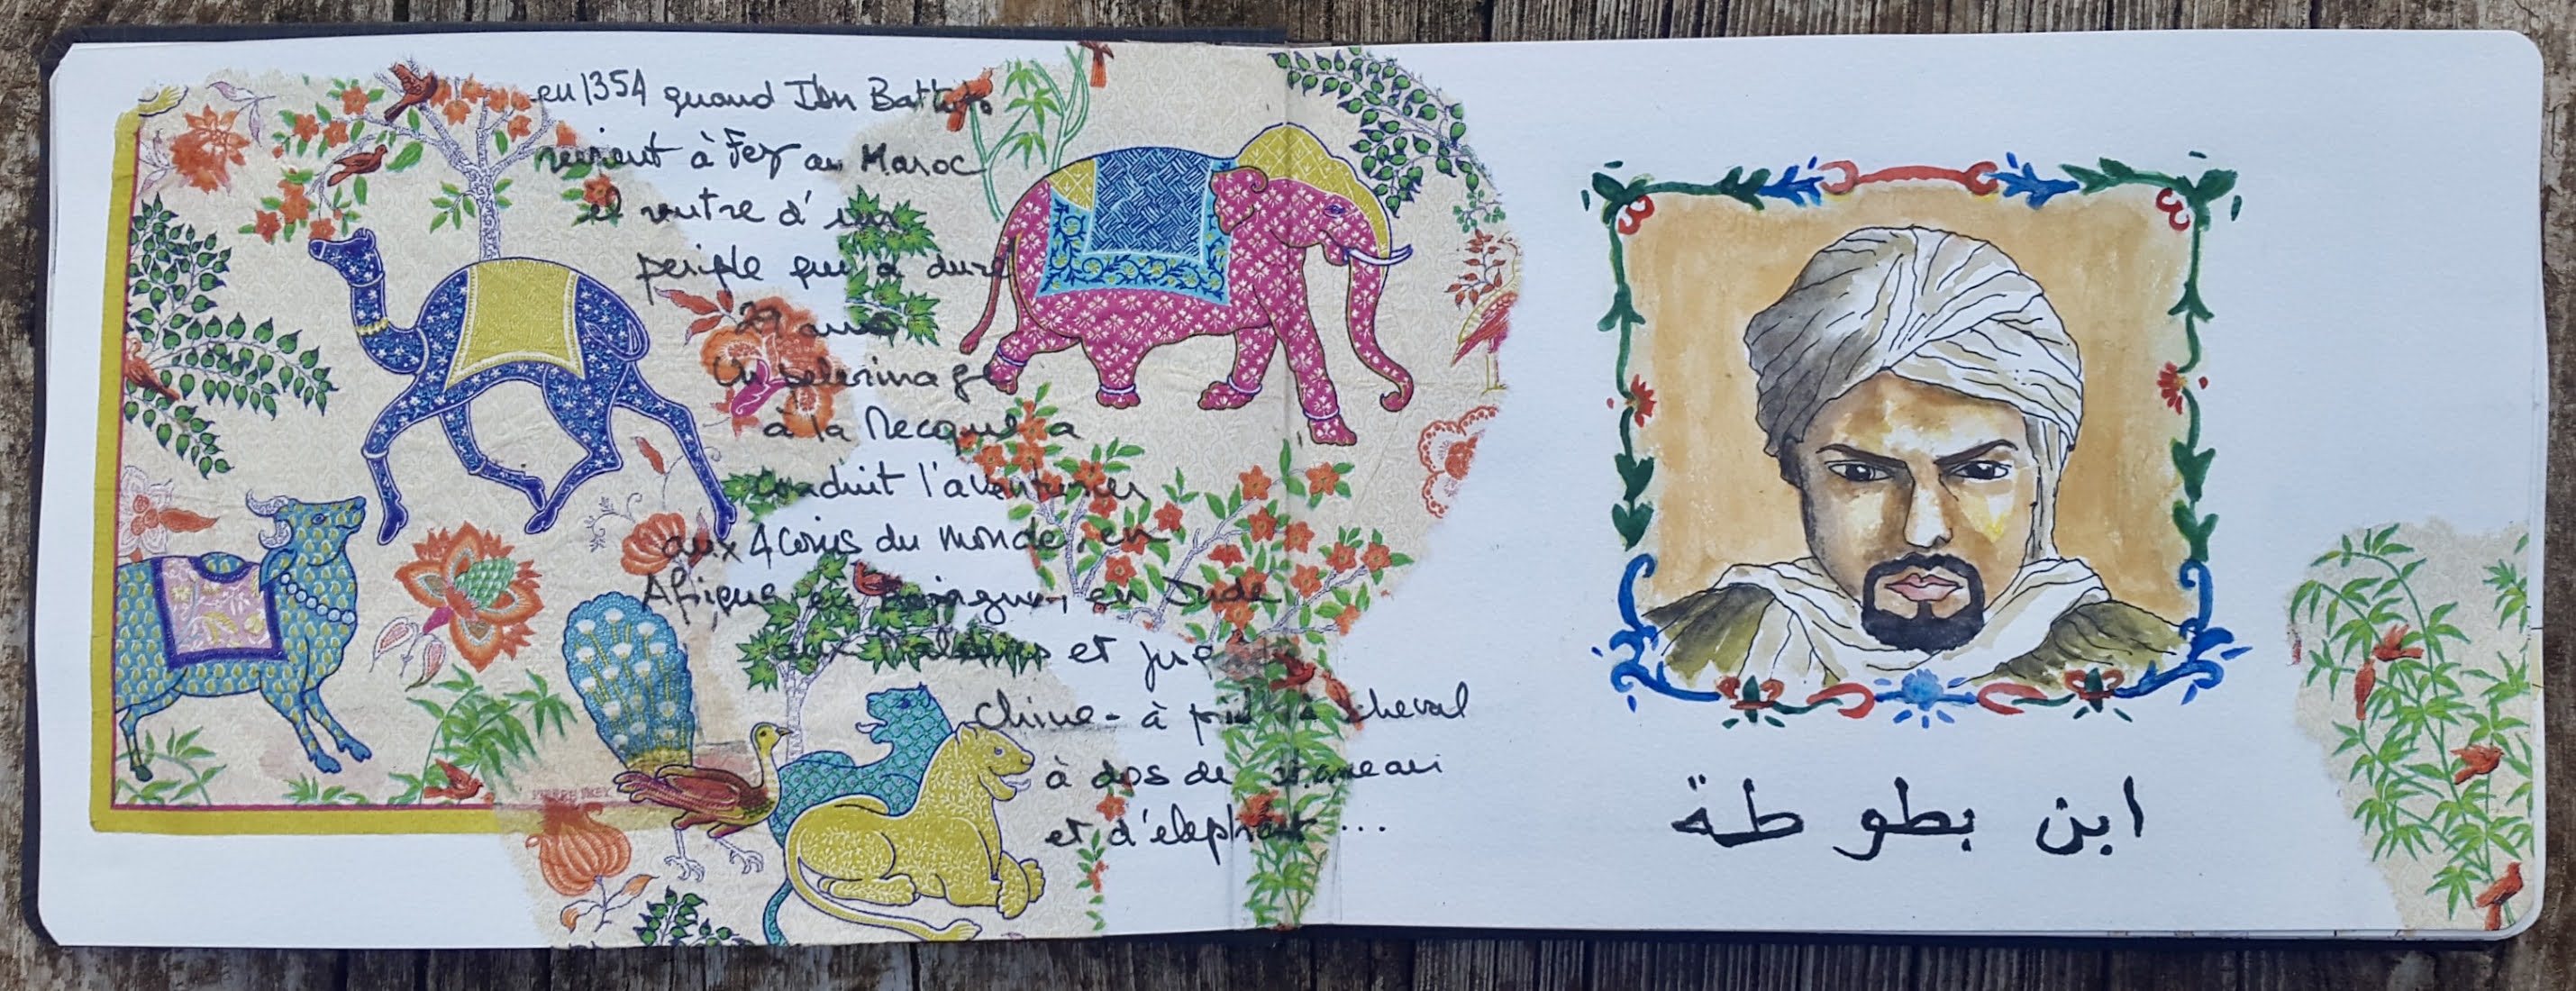 en 1354 quand Ibn Battuta
revient à Fez au Maroc
il rentre d'un
periple qui a duré
29 ans
Un pelerinage
à la Mecque a
conduit l'aventurier
aux 4 coins du monde, en
Afrique, en Espagne, en Inde
aux Maldives et jusqu'
chine - à pied à cheval
à dos de chameau
et d'elephant ...
ابن بطوطة
PIERRE FREY